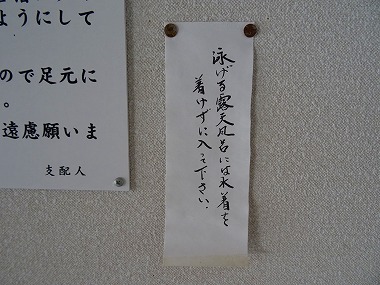 ようにして
ので足元に
。
遠慮願いま
支配人
泳げる露天風呂には水着を
着けずに入って下さい.